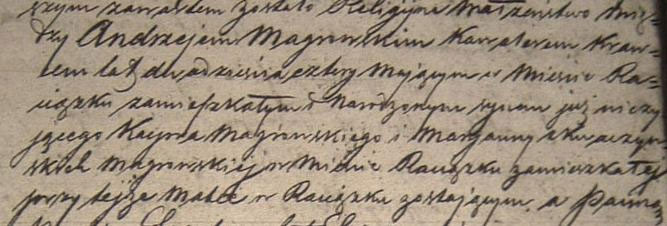 szym zawartem zostało Religijne Małżeństwo mię=
dzy Andrzejem Magrowskim Kawalerem Kraw=
cem lat dwadzieścia cztery mającym w Mieście Ra=
ciążku zamieszkałym Narodzonym synem już nieży
jącego Magrowskiego i Maryanny
skich Magrowskiej w Mieście Raciążku zamieszkałej
przy tejże Matce w Raciążku zostającym, a Panną